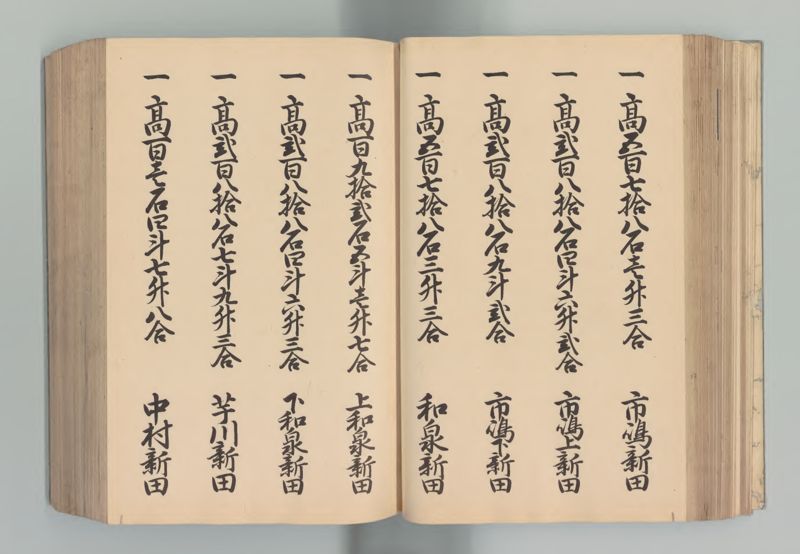 一 高五百七拾八石壱升三合 市嶋新田
一 高弐百八拾八石四斗六升弐合 市嶋上新田
一 高弐百八拾八石九斗弐合 市嶋下新田
一 高五百七拾八石三升三合 和泉新田
一 高百九拾弐石五斗壱升七合 上和泉新田
一 高弐百八拾八石四斗六升三合 下和泉新田
一 高弐百八拾八石七斗九升三合 芋川新田
一 高百壱石四斗七升八合 中村新田